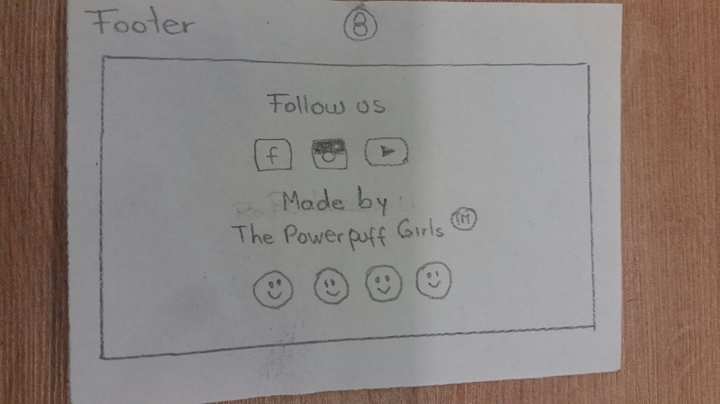 Footer
8
Follow us
f
Made by
The Powerpuff Girls TM